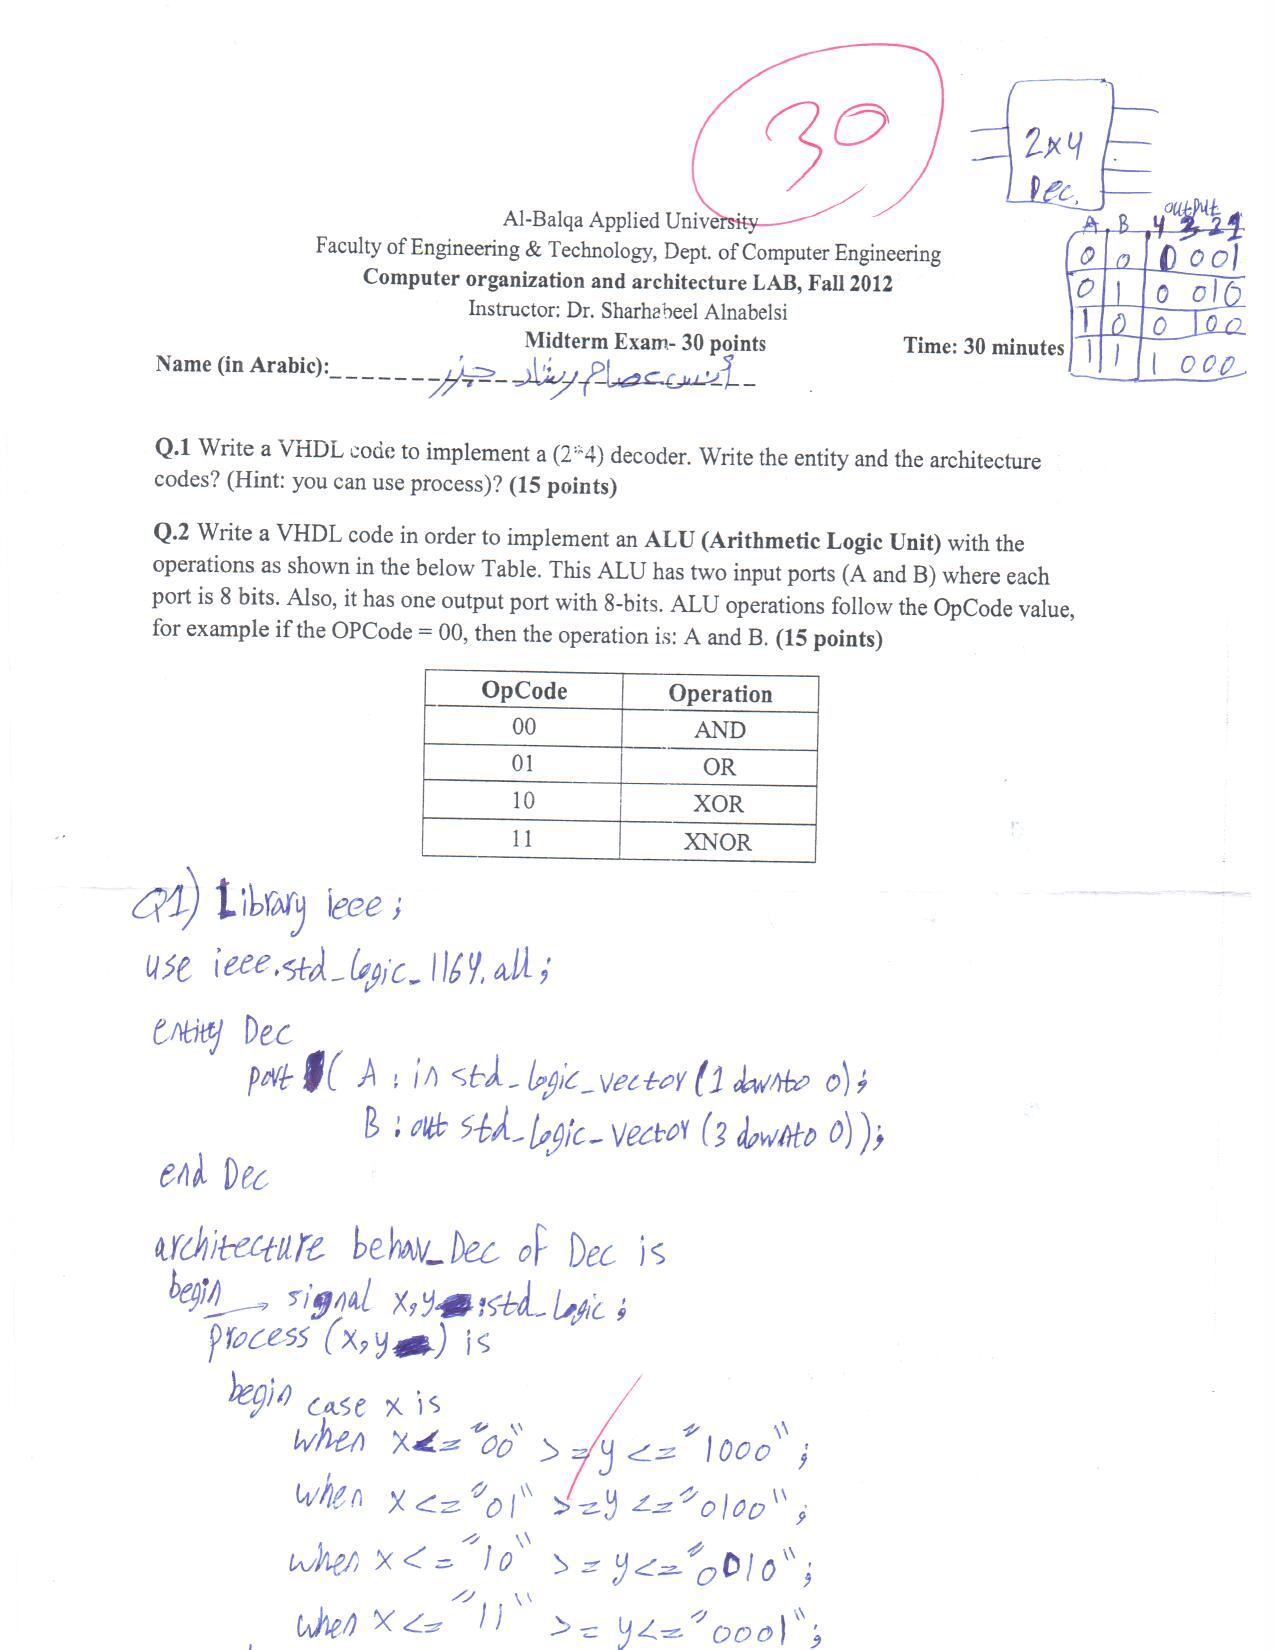 30
2x4
Dec.
Al-Balqa Applied University
Faculty of Engineering & Technology, Dept. of Computer Engineering
Computer organization and architecture LAB, Fall 2012
Instructor: Dr. Sharhabeel Alnabelsi
Midterm Exam- 30 points
Time: 30 minutes
output
A B 4 3 2 1
0 0 0 0 0 1
0 1 0 0 1 0
1 0 0 1 0 0
1 1 1 0 0 0
Name (in Arabic): أنس عصام رشاد
Q.1 Write a VHDL code to implement a (2*4) decoder. Write the entity and the architecture
codes? (Hint: you can use process)? (15 points)
Q.2 Write a VHDL code in order to implement an ALU (Arithmetic Logic Unit) with the
operations as shown in the below Table. This ALU has two input ports (A and B) where each
port is 8 bits. Also, it has one output port with 8-bits. ALU operations follow the OpCode value,
for example if the OPCode = 00, then the operation is: A and B. (15 points)
OpCode Operation
00 AND
01 OR
10 XOR
11 XNOR
Q1) Library ieee;
use ieee.std_logic_1164.all;
entity Dec
port ( A : in std_logic_vector (1 downto 0);
B : out std_logic_vector (3 downto 0));
end Dec
architecture behav_Dec of Dec is
begin → signal x,y :std_logic;
process (x,y) is
begin case x is
when x<="00" >=y<="1000";
when x<="01" >=y<="0100";
when x<="10" >=y<="0010";
when x<="11" >=y<="0001";